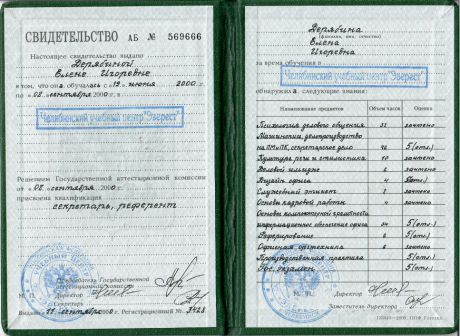 СВИДЕТЕЛЬСТВО АБ № 569666
Настоящее свидетельство выдано
Дерябиной
Елене Игоревне
в том, что она обучалась с «12» июня 2000 г.
по «08» сентября 2000 г. в
Челябинский учебный центр "Эверест"
Решением Государственной аттестационной комиссии
от «08» сентября 2000 г.
присвоена квалификация
секретарь, референт
Председатель Государственной
аттестационной комиссии
М. П. Директор
Секретарь
Выдано «11» сентября 2000 г. Регистрационный № 3428
Дерябина
(фамилия, имя, отчество)
Елена
Игоревна
за время обучения в
Челябинский учебный центр "Эверест"
обнаружила следующие знания:
Наименование предметов Объем часов Оценка
Психология делового общения 32 зачтено
Машинопись, делопроизводство
на ПМ и ПК, секретарское дело 92 5(отл.)
Культура речи и стилистика 10 зачтено
Деловой имидж зачтено
Дизайн офиса 5(отл.)
Служебный этикет 8 зачтено
Основы кадровой работы 4 зачтено
Основы компьютерной грамотности
информационное обеспечение офиса 34 5(отл.)
Реферирование 5(отл.)
Офисная оргтехника 8 зачтено
Производственная практика 5(отл.)
Гос. экзамен 5(отл.)
М. П. Директор
Заместитель директора